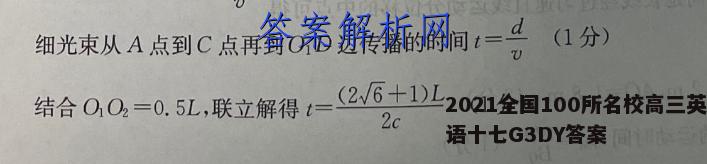 答案解析网
细光束从 A 点到 C 点再到 O₁D 边传播的时间 t=d/v （1 分）
结合 O₁O₂=0.5L,联立解得 t=(2√6+1)L/2c
2021全国100所名校高三英
语十七G3DY答案